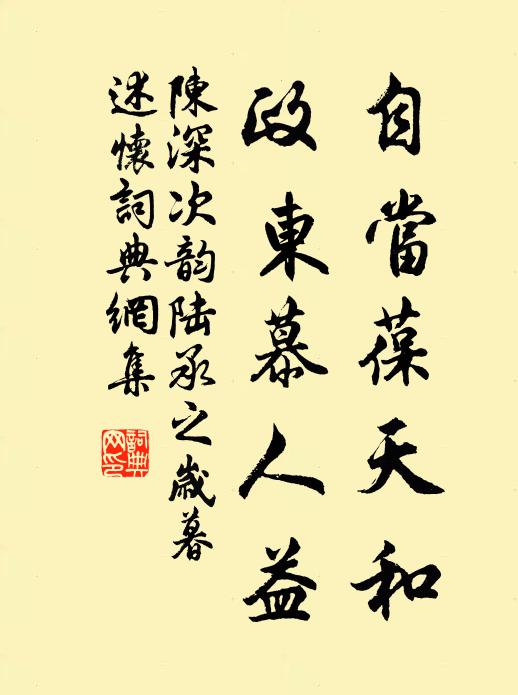 自當葆天和
政東慕人益
陳深次韵陆承之歲暮
述懷詞典網集
詞典
网印